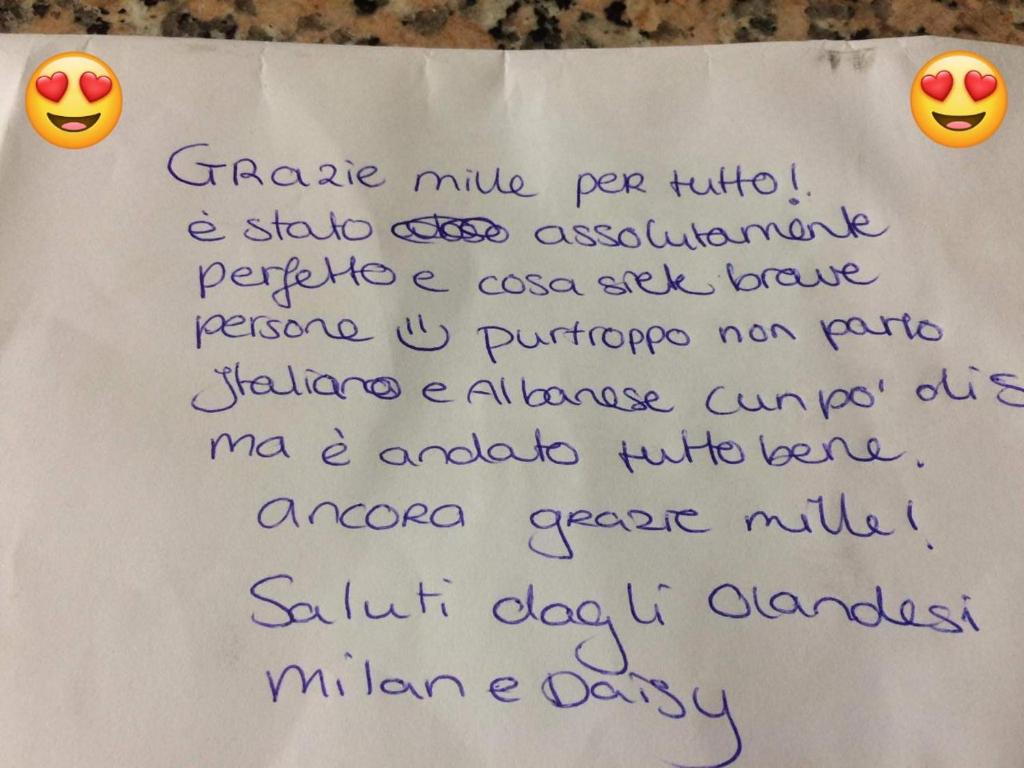 GRazie mille per tutto!
è stato assolutamente
perfetto e cosa siete brave
persone purtroppo non parlo
Italiano e Albanese cunpo'
ma è andato tutto bene.
ancora grazie mille!
Saluti dagli Olandesi
Milan e Daisy